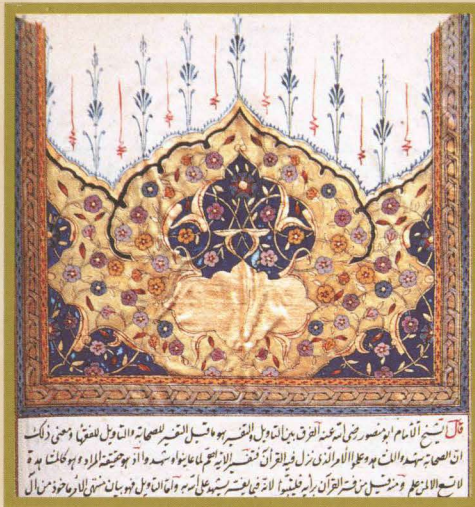 قال الشيخ الامام ابو منصور رضى الله عنه الفرق بين التاويل والتفسير هو ما قيل التفسير للصحابة والتاويل للفقهاء ومعنى ذلك
ان الصحابة شهدوا المشاهد وعلموا الامر الذى نزل فيه القرآن فتفسير الاية اهم لما عاينوا وشهدوا اذ هو حقيقة المراد وهو كالمشاهدة
لا تسع الا لمن علم ومنه قيل من فسر القرآن برأيه فليتبوأ لانه فيما يفسر يشهد على الله به واما التاويل فهو بيان منتهى الامر ماخوذ من آل